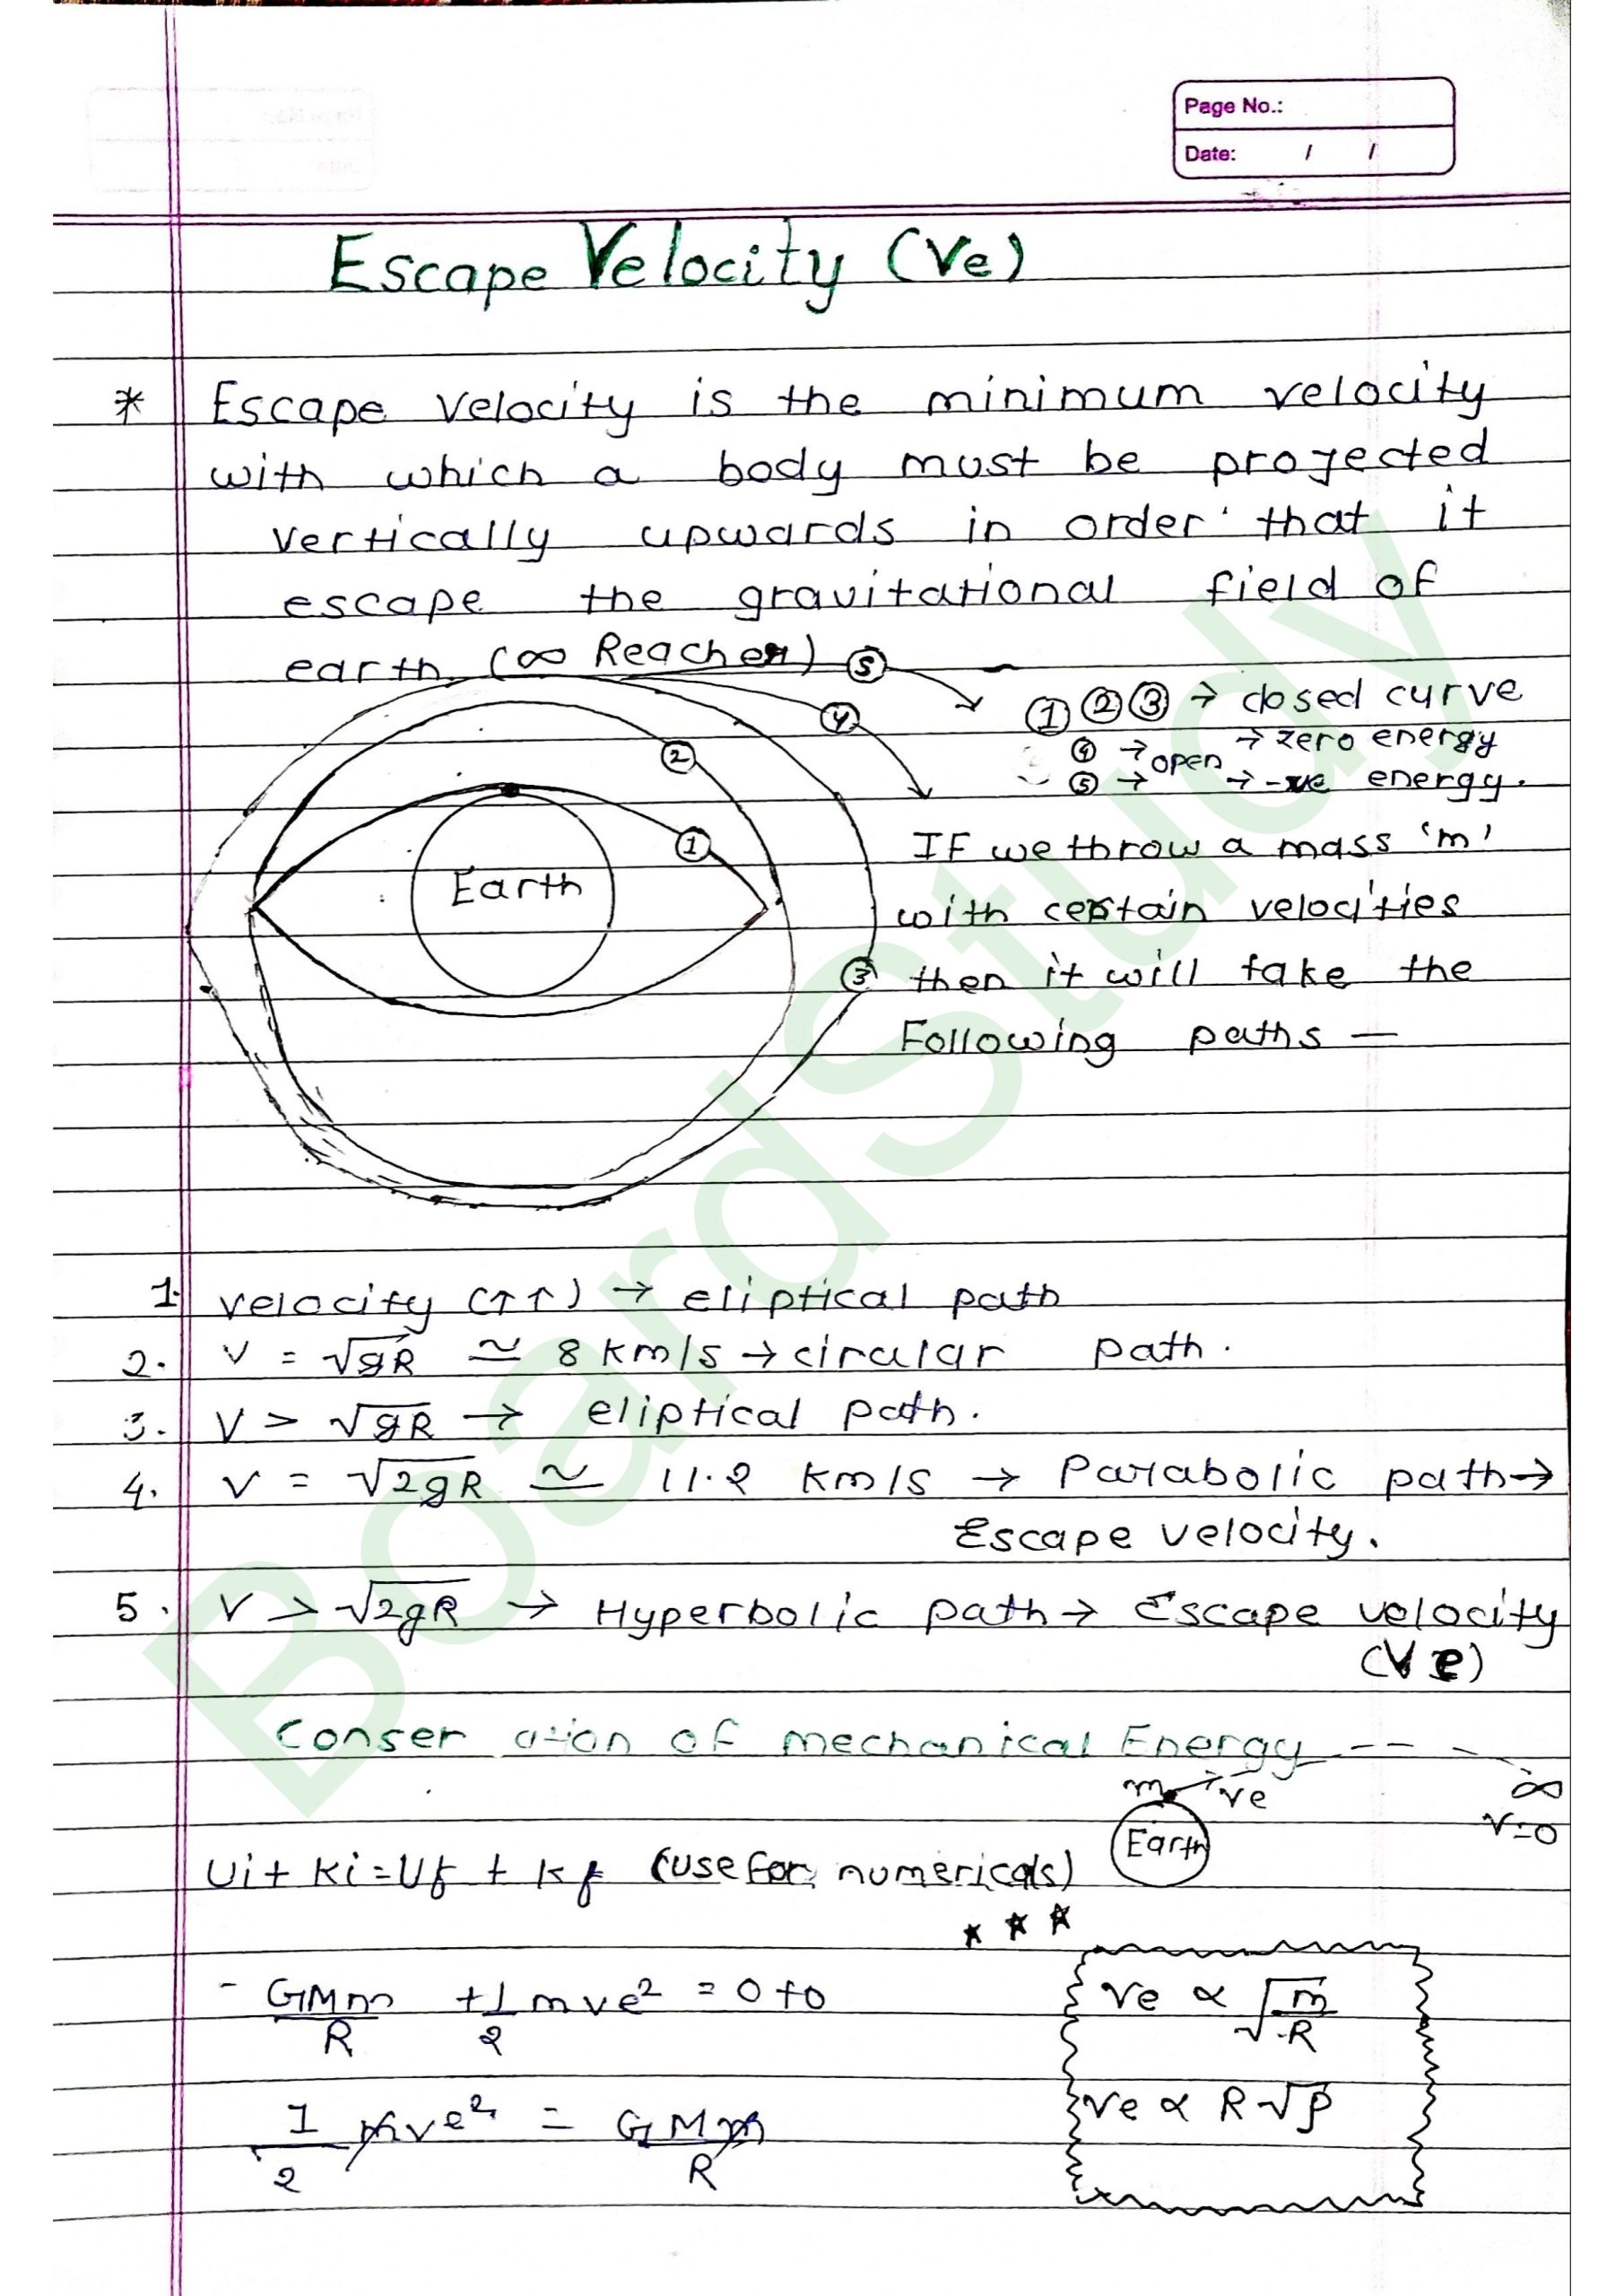 Page No.:
Date: / /
Escape Velocity (Ve)
* Escape velocity is the minimum velocity
with which a body must be projected
vertically upwards in order that it
escape the gravitational field of
earth. (∞ Reacher) ⑤
④
① ② ③ → closed curve
④ → open → zero energy
⑤ → → -ve energy.
②
①
Earth
③
IF we throw a mass 'm'
with certain velocities
then it will take the
Following paths —
1. velocity (↑↑) → eliptical path
2. v = √gR ≃ 8 km/s → circular path.
3. V > √gR → eliptical path.
4. v = √2gR ≃ 11.2 km/s → Parabolic path →
Escape velocity.
5. V > √2gR → Hyperbolic path → Escape velocity
(Ve)
Conser ation of mechanical Energy
m ve ∞
v=0
Earth
Ui + Ki = Uf + Kf (use for numericals)
* * *
- GMm/R + 1/2 mve² = 0 + 0
ve ∝ √m/R
1/2 mve² = GMm/R
ve ∝ R√ρ
BoardStudy